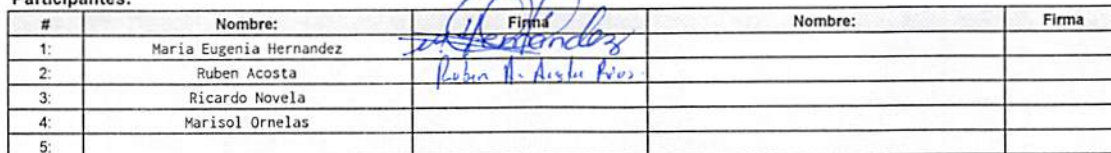 Participantes:
# Nombre: Firma Nombre: Firma
1: Maria Eugenia Hernandez Hernandez
2: Ruben Acosta Ruben A. Acosta Rios.
3: Ricardo Novela
4: Marisol Ornelas
5: